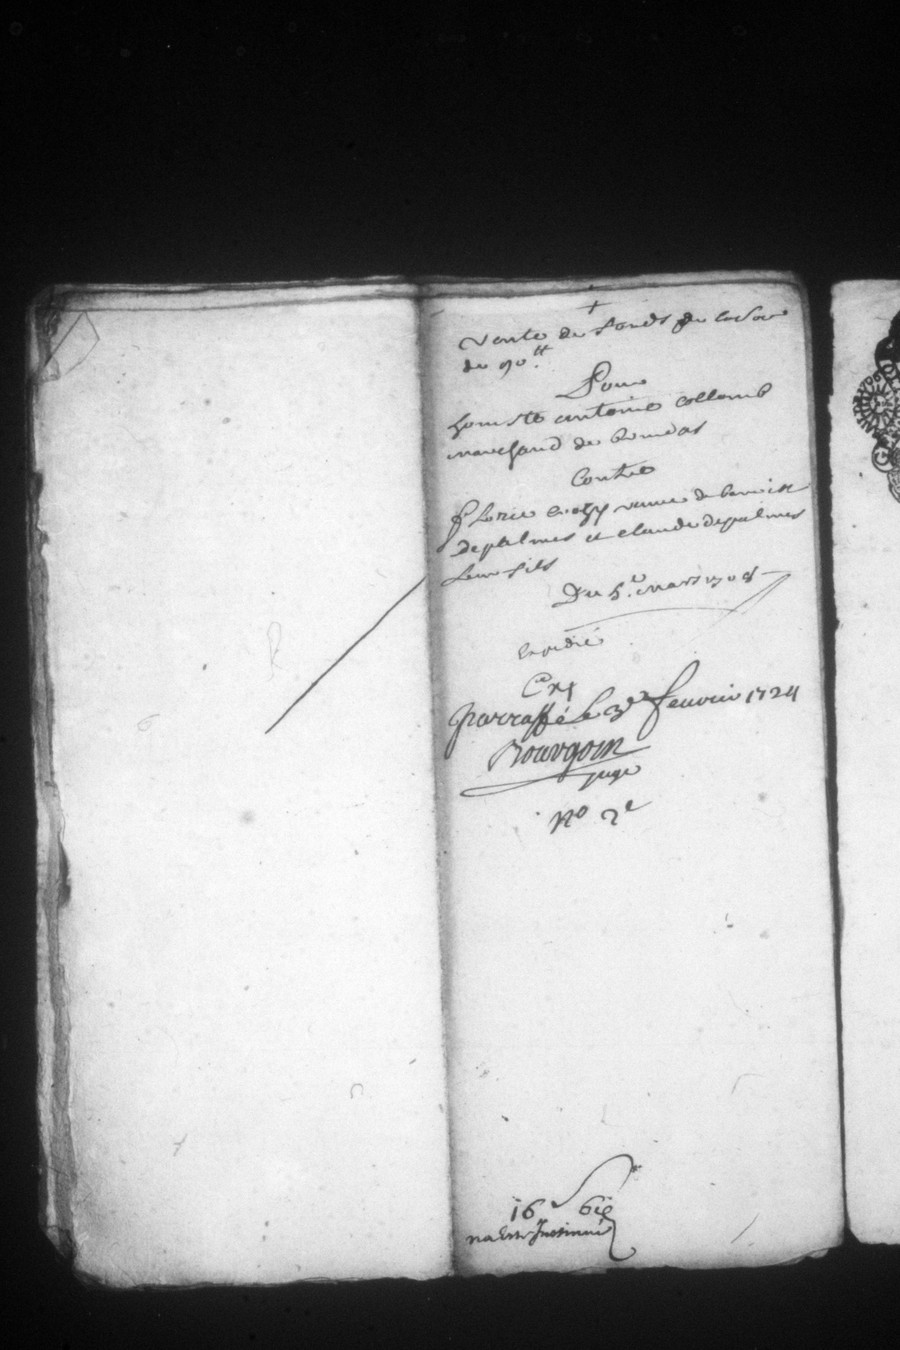 +
Vente de fonds de
de 90 ᵗᵗ
Pour
honneste antoine collomb
marchand de
Contre
florie veuve de benoist
depalmes et claude depalmes
leur fils
Du 5.e mars 1708
Expédié
Parraffé le 3e fevrier 1724
Bourgoin
juge
No 2e
16